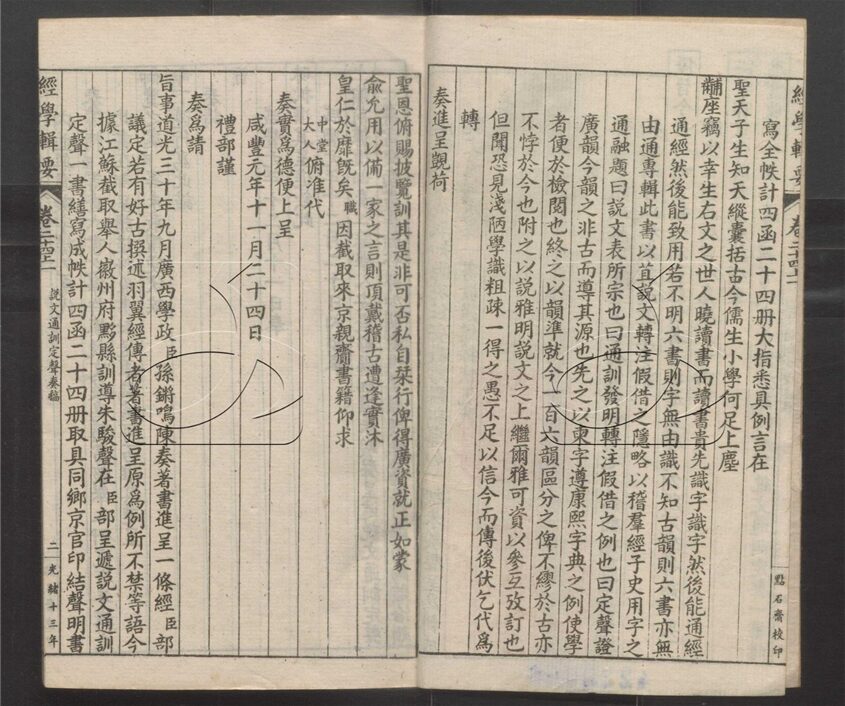 經學輯要
卷二十四上
點石齋校印
寫全帙計四函二十四册大指悉具例言在
聖天子生知天縱囊括古今儒生小學何足上塵
黼座竊以幸生右文之世人曉讀書而讀書貴先識字識字然後能通經
通經然後能致用若不明六書則字無由識不知古韻則六書亦無
由通專輯此書以苴說文轉注假借之隱略以稽羣經子史用字之
通融題曰說文表所宗也曰通訓發明轉注假借之例也曰定聲證
廣韻今韻之非古而導其源也先之以柬字遵康熙字典之例使學
者便於檢閱也終之以韻準就今一百六韻區分之俾不繆於古亦
不悖於今也附之以說雅明說文之上繼爾雅可資以參互攷訂也
但聞恐見淺陋學識粗疎一得之愚不足以信今而傳後伏乞代爲
轉
奏進呈覬荷
聖恩俯賜披覽訓其是非可否私自栞行俾得廣資就正如蒙
兪允用以備一家之言則頂戴稽古遭逢實沐
皇仁於靡旣矣職因截取來京親齎書籍仰求
中堂大人俯准代
奏實爲德便上呈
咸豐元年十一月二十四日
禮部謹
奏爲請
旨事道光三十年九月廣西學政臣孫鏘鳴陳奏著書進呈一條經臣部
議定若有好古撰述羽翼經傳者著書進呈原爲例所不禁等語今
據江蘇截取舉人徽州府黟縣訓導朱駿聲在臣部呈遞說文通訓
定聲一書繕寫成帙計四函二十四册取具同鄉京官印結聲明書
經學輯要
說文通訓定聲奏稿
二
光緒十三年